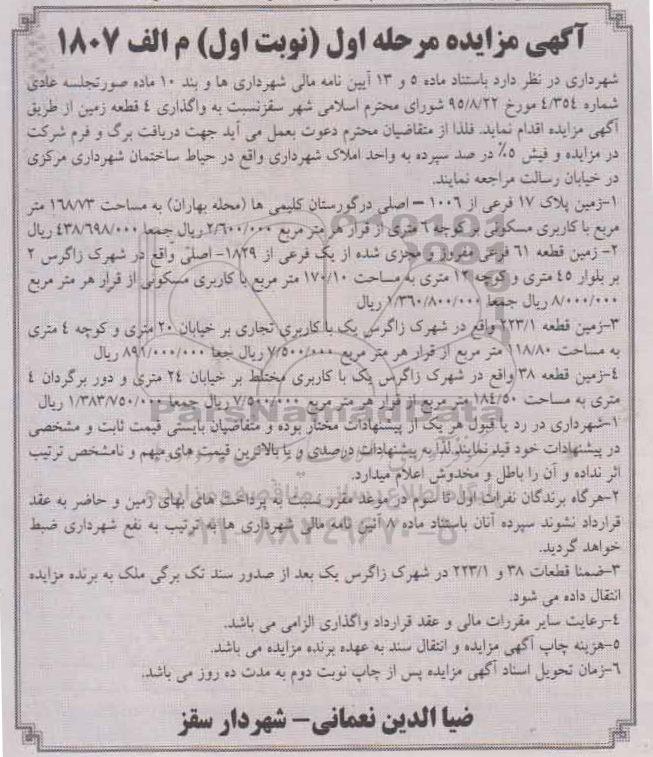 آگهی مزایده مرحله اول (نوبت اول) م الف ۱۸۰۷
شهرداری در نظر دارد باستناد ماده ۵ و ۱۳ آیین نامه مالی شهرداری ها و بند ۱۰ ماده صورتجلسه عادی
شماره ٤/۳۵٤ مورخ ۹۵/۸/۲۲ شورای محترم اسلامی شهر سقزنسبت به واگذاری ٤ قطعه زمین از طریق
آگهی مزایده اقدام نماید. فلذا از متقاضیان محترم دعوت بعمل می آید جهت دریافت برگ و فرم شرکت
در مزایده و فیش ۵٪ در صد سپرده به واحد املاک شهرداری واقع در حیاط ساختمان شهرداری مرکزی
در خیابان رسالت مراجعه نمایند.
۱-زمین پلاک ۱۷ فرعی از ۱۰۰۶ – اصلی درگورستان کلیمی ها (محله بهاران) به مساحت ۱۶۸/۷۳ متر
مربع با کاربری مسکونی بر کوچه ٦ متری از قرار هر متر مربع ۲/٦۰۰/۰۰۰ ریال جمعا ٤۳۸/٦۹۸/۰۰۰ ریال
۲- زمین قطعه ٦۱ فرعی مفروز و مجزی شده از یک فرعی از ۱۸۲۹- اصلی واقع در شهرک زاگرس ۲
بر بلوار ٤۵ متری و کوچه ۱۲ متری به مساحت ۱۷۰/۱۰ متر مربع با کاربری مسکونی از قرار هر متر مربع
۸/۰۰۰/۰۰۰ ریال جمعا ۱/۳٦۰/۸۰۰/۰۰۰ ریال
۳-زمین قطعه ۲۲۳/۱ واقع در شهرک زاگرس یک با کاربری تجاری بر خیابان ۲۰ متری و کوچه ٤ متری
به مساحت ۱۱۸/۸۰ متر مربع از قرار هر متر مربع ۷/۵۰۰/۰۰۰ ریال جمعا ۸۹۱/۰۰۰/۰۰۰ ریال
٤-زمین قطعه ۳۸ واقع در شهرک زاگرس یک با کاربری مختلط بر خیابان ۲٤ متری و دور برگردان ٤
متری به مساحت ۱۸٤/۵۰ متر مربع از قرار هر متر مربع ۷/۵۰۰/۰۰۰ ریال جمعا ۱/۳۸۳/۷۵۰/۰۰۰ ریال
۱-شهرداری در رد یا قبول هر یک از پیشنهادات مختار بوده و متقاضیان بایستی قیمت ثابت و مشخصی
در پیشنهادات خود قید نمایند لذا به پیشنهادات درصدی و یا بالاترین قیمت های مبهم و نامشخص ترتیب
اثر نداده و آن را باطل و مخدوش اعلام میدارد.
۲-هرگاه برندگان نفرات اول تا سوم در موعد مقرر نسبت به پرداخت های بهای زمین و حاضر به عقد
قرارداد نشوند سپرده آنان باستناد ماده ۸ آئین نامه مالی شهرداری ها به ترتیب به نفع شهرداری ضبط
خواهد گردید.
۳-ضمنا قطعات ۳۸ و ۲۲۳/۱ در شهرک زاگرس یک بعد از صدور سند تک برگی ملک به برنده مزایده
انتقال داده می شود.
٤-رعایت سایر مقررات مالی و عقد قرارداد واگذاری الزامی می باشد.
۵-هزینه چاپ آگهی مزایده و انتقال سند به عهده برنده مزایده می باشد.
٦-زمان تحویل اسناد آگهی مزایده پس از چاپ نوبت دوم به مدت ده روز می باشد.
ضیا الدین نعمانی- شهردار سقز
ParsNamadData
۰۲۱-۸۸۳٤۹٦۷۰-۵